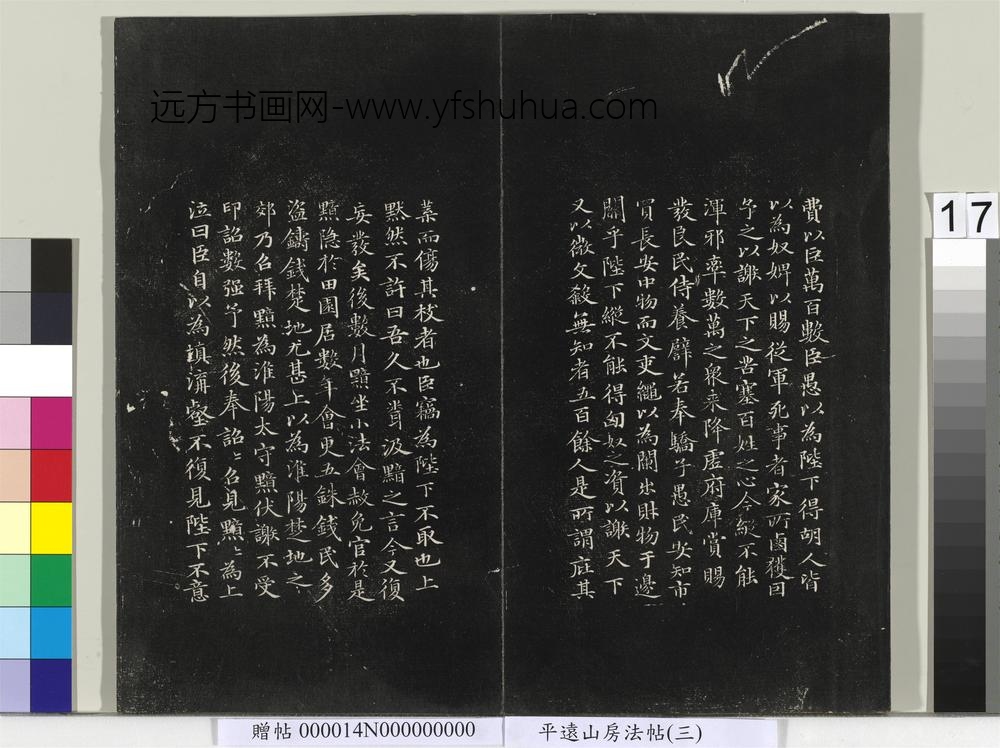 远方书画网-www.yfshuhua.com
17
費以巨萬百數臣愚以為陛下得胡人皆
以為奴婢以賜從軍死事者家所鹵獲因
予之以謝天下之苦塞百姓之心今縱不能
渾邪率數萬之衆来降虚府庫賞賜
發良民侍養譬若奉驕子愚民安知市
買長安中物而文吏繩以為闌出財物于邊
關乎陛下縱不能得匈奴之資以謝天下
又以微文殺無知者五百餘人是所謂庇其
葉而傷其枝者也臣竊為陛下不取也上
默然不許曰吾久不聞汲黯之言今又復
妄發矣後數月黯坐小法會赦免官於是
黯隐於田園居數年會更五銖錢民多
盗鑄錢楚地尤甚上以為淮陽楚地之
郊乃召拜黯為淮陽太守黯伏謝不受
印詔數强予然後奉詔〻召見黯〻為上
泣曰臣自以為填溝壑不復見陛下不意
贈帖 000014N000000000
平遠山房法帖(三)